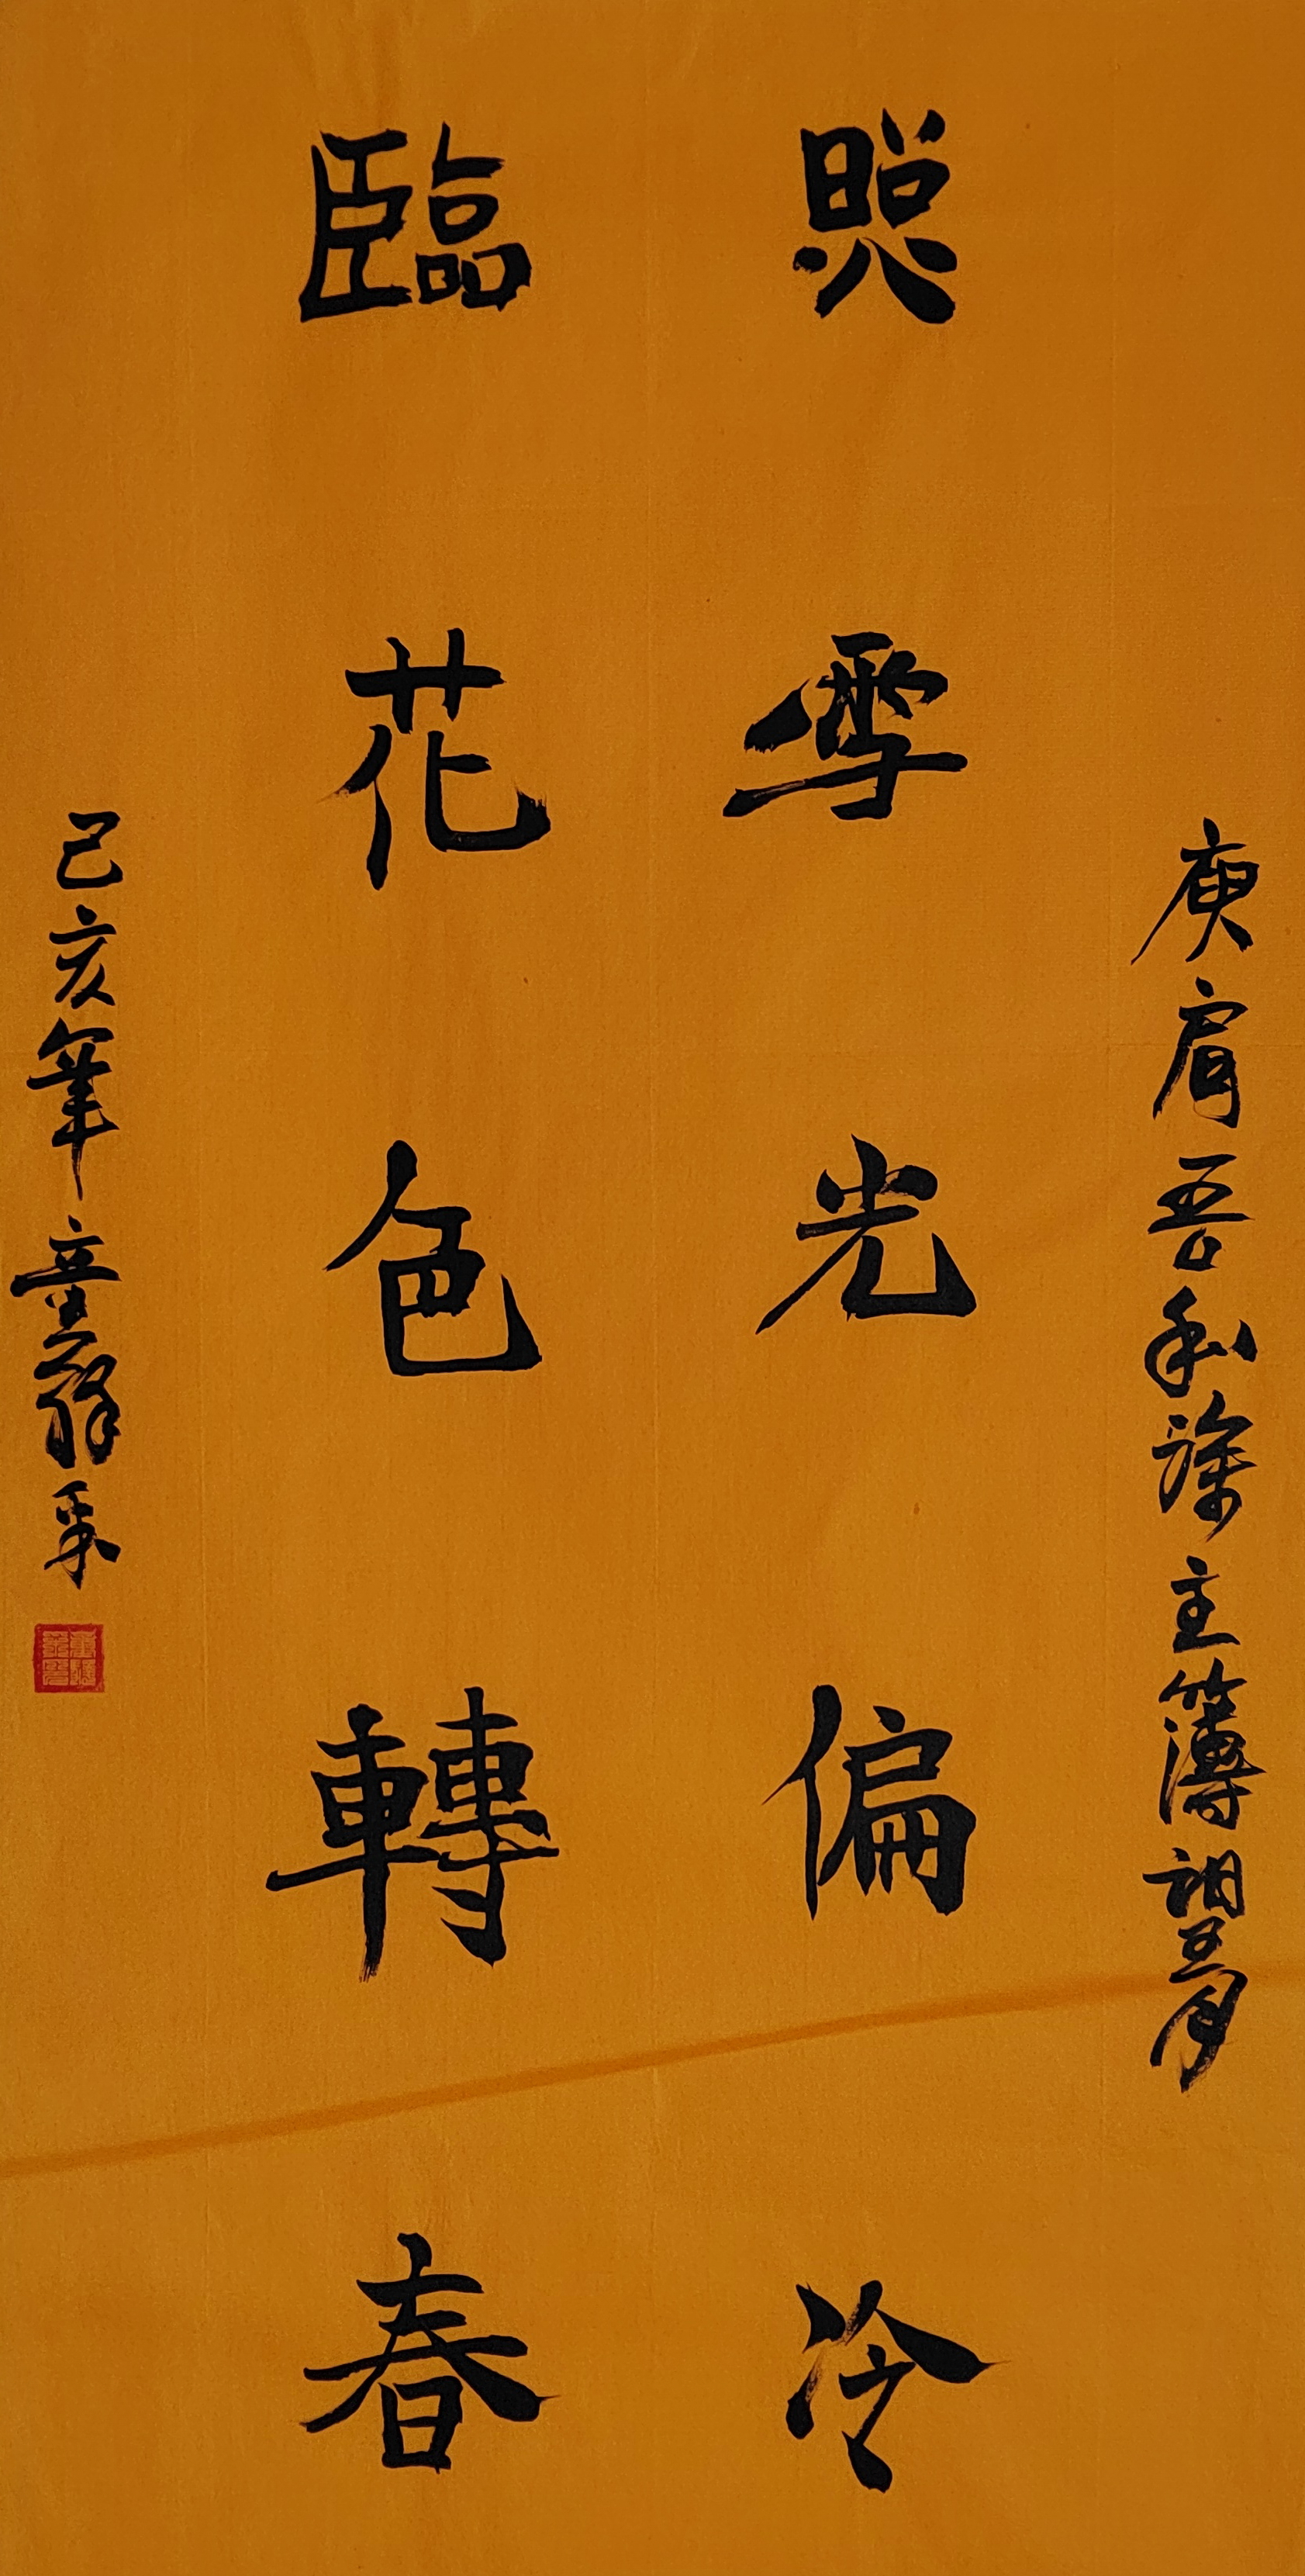 庾肩吾和徐主簿望月
照雪光偏冷
臨花色轉春
己亥年